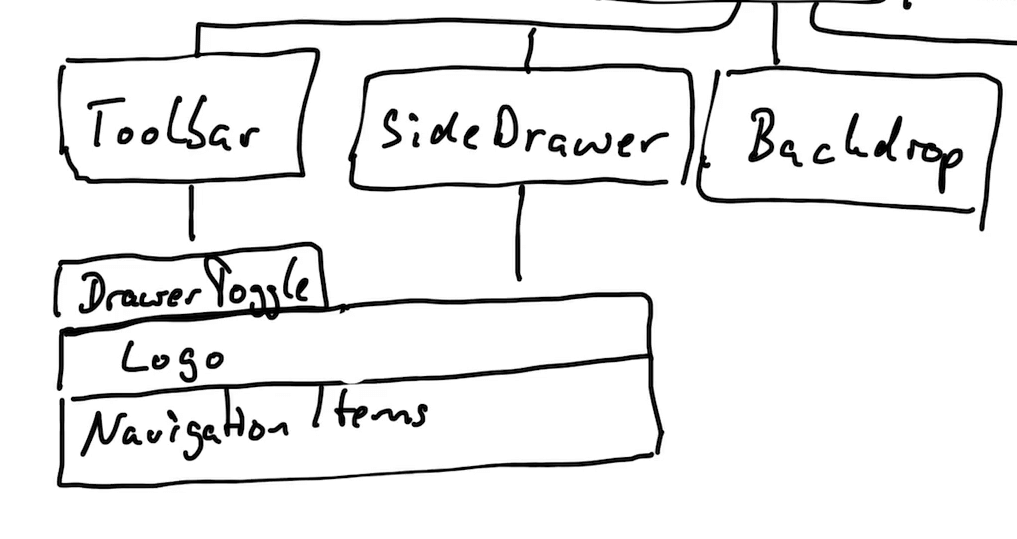 Toolbar
SideDrawer
Backdrop
DrawerToggle
Logo
Navigation Items